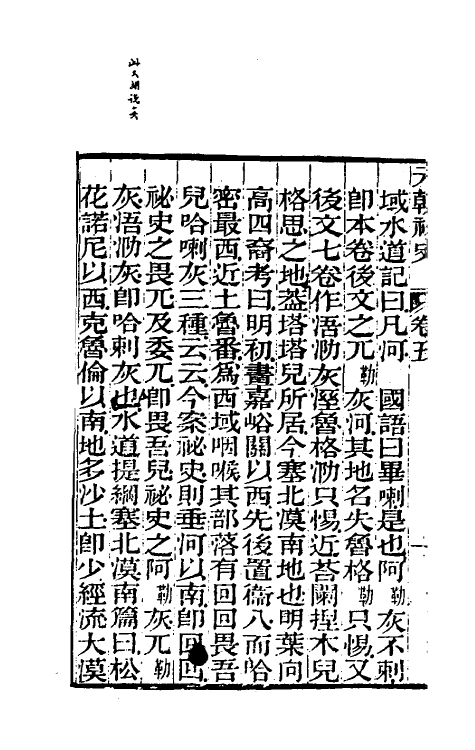 此又胡說矣
元朝祕史 卷五 一
域水道記曰凡河 國語曰畢喇是也阿勒灰不剌
卽本卷後文之兀勒灰河其地名失魯格勒只惕又
後文七卷作浯泐灰溼魯格泐只惕近荅闌捏木兒
格思之地葢塔塔兒所居今塞北漠南地也明葉向
高四裔考曰明初畫嘉峪關以西先後置衞八而哈
密最西近土魯番爲西域咽喉其部落有回回畏吾
兒哈喇灰三種云云今案祕史則垂河以南卽回回
祕史之畏兀及委兀卽畏吾兒祕史之阿勒灰兀勒
灰浯泐灰卽哈剌灰也水道提綱塞北漠南篇曰松
花諾尼以西克魯倫以南地多沙土卽少經流大漠